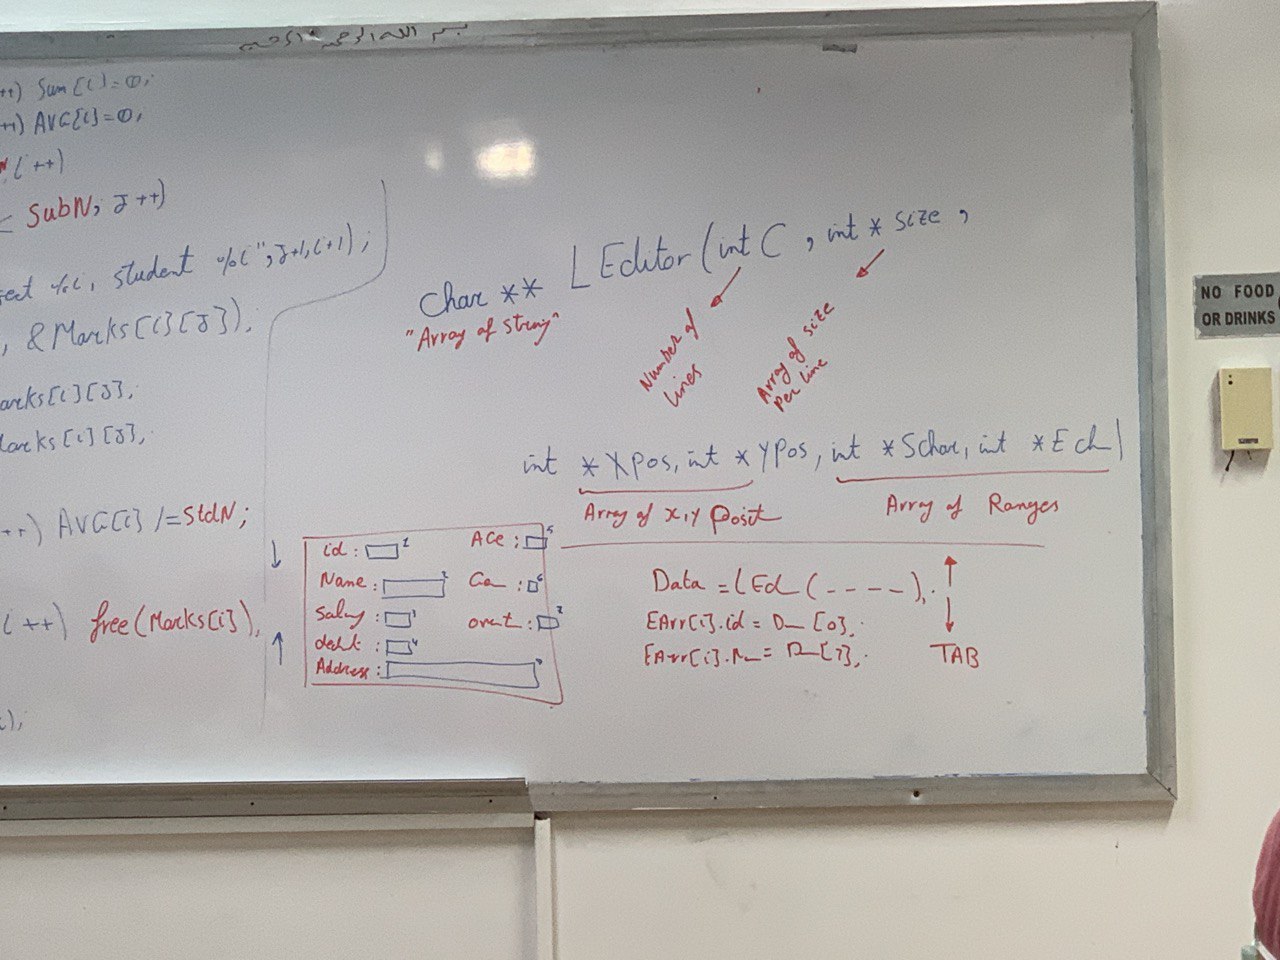 بسم الله الرحمن الرحيم
++) Sum[i]=0;
++) AVG[i]=0;
i++)
< SubN; J++)
ject %i, student %i", J+1, i+1);
, &Marks[i][J]);
arks[i][J];
Marks[i][J];
++) AVG[i] /=StdN;
i++) free(Marks[i]);
);
Char ** LEditor(int C, int * size,
"Array of String"
Number of
lines
Array of size
per line
int *XPos, int *YPos, int *SChar, int *ECh)
Array of x,y Posit
Array of Ranges
id: 1
Name: 2
Salary: 3
dedt: 4
Address:
AGe: 5
Ge: 6
overt: 7
Data = LEd (----);
EArr[i].id = D_[0];
EArr[i].N_ = D_[1];
TAB
NO FOOD
OR DRINKS